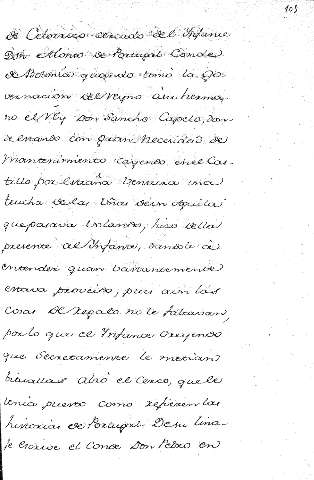 103
de Celorico cercado del Infante
Don Alonso de Portugal Conde
de Bolonia quando tomó la Go-
vernacion del Reyno á su herma-
no el Rey Don Sancho Capelo, don-
de estando con gran necesidad de
mantenimiento cayendo en el Cas-
tillo, por estraña ventura una
trucha de las Uñas de un Aguila
que pasava bolando, hizo della
presente al Infante, dandole á
entender quan bastantemente
estava proveido, pues aun las
cosas de regalo no le faltavan,
por lo que el Infante creyendo
que secretamente le metian
vituallas alzó el Cerco, que le
tenia puesto como refieren las
historias de Portugal. De su lina-
je escrive el Conde Don Pedro en